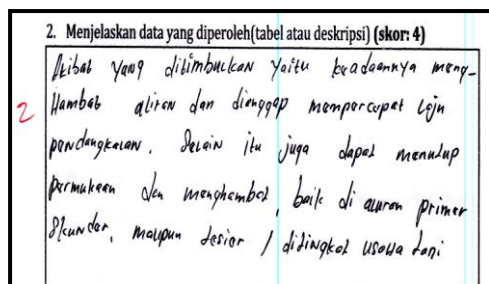 2. Menjelaskan data yang diperoleh(tabel atau deskripsi) (skor: 4)
Akibat yang ditimbulkan yaitu keadaannya meng-
2 Hambat aliran dan dianggap mempercepat laju
pendangkalan. Selain itu juga dapat menutup
permukaan dan menghambat, baik di aluran primer
Skunder, maupun tesier / ditingkat usaha tani